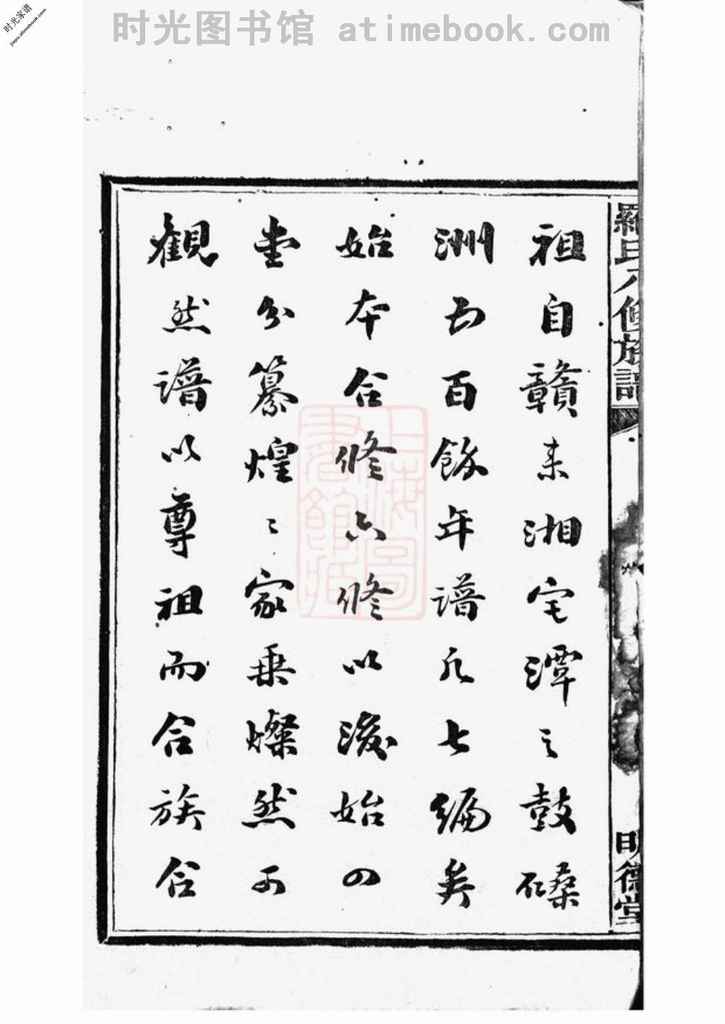 时光图书馆 atimebook.com
时光家谱
祖自贛来湘宅潭之鼓磉
洲五百餘年譜凡七編矣
始本合修六修以後始四
堂分纂煌〻家乗燦然可
觀然譜以尊祖而合族合
羅氏八修族譜
明德堂
上海圖書館藏